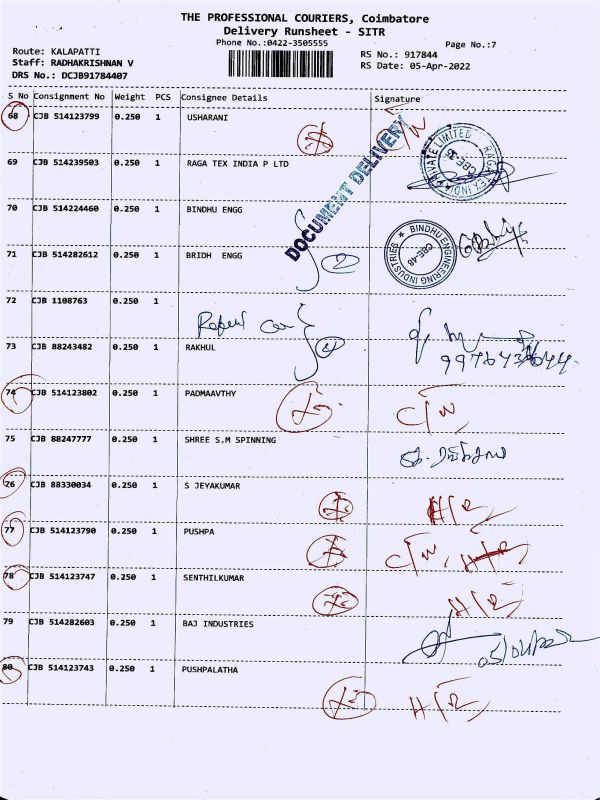 THE PROFESSIONAL COURIERS, Coimbatore
Delivery Runsheet - SITR
Phone No.:0422-3505555
Page No.:7
Route: KALAPATTI
Staff: RADHAKRISHNAN V
DRS No.: DCJB91784407
RS No.: 917844
RS Date: 05-Apr-2022
S No Consignment No Weight PCS Consignee Details Signature
68 CJB 514123799 0.250 1 USHARANI C/N
DOCUMENT DELIVERY
69 CJB 514239503 0.250 1 RAGA TEX INDIA P LTD
RAGA TEX INDIA PRIVATE LIMITED
70 CJB 514224460 0.250 1 BINDHU ENGG
BINDHU ENGINEERING INDUSTRIES CBE-48
71 CJB 514282612 0.250 1 BRIDH ENGG 2
72 CJB 1108763 0.250 1
73 CJB 88243482 0.250 1 RAKHUL
74 CJB 514123802 0.250 1 PADMAAVTHY C/N
75 CJB 88247777 0.250 1 SHREE S.M SPINNING
76 CJB 88330034 0.250 1 S JEYAKUMAR H/R
77 CJB 514123790 0.250 1 PUSHPA C/N, H/R
78 CJB 514123747 0.250 1 SENTHILKUMAR H/R
79 CJB 514282603 0.250 1 BAJ INDUSTRIES
80 CJB 514123743 0.250 1 PUSHPALATHA H/R